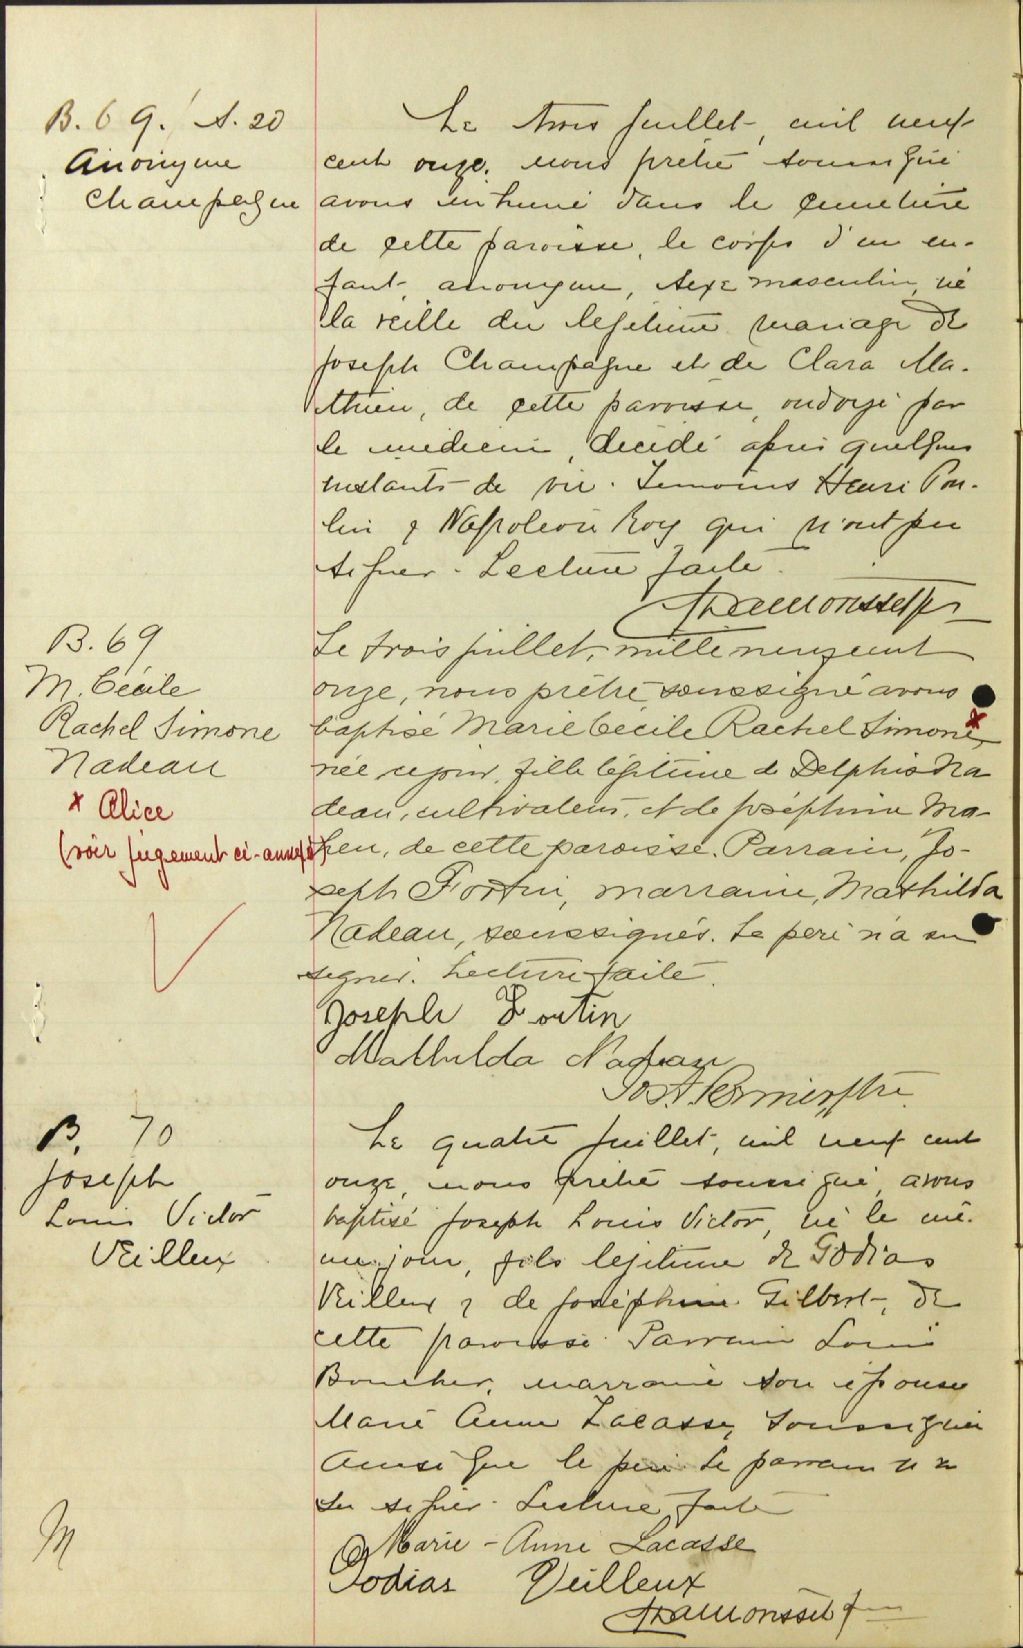 B. 69. S. 20
Anonyme
Champagne
Le trois juillet, mil neuf
cent onze, nous prêtre soussigné
avons inhumé dans le cimetière
de cette paroisse, le corps d'un en-
fant, anonyme, sexe masculin, né
la veille du légitime mariage de
Joseph Champagne et de Clara Ma-
thieu, de cette paroisse, ondoyé par
le médecin, décédé après quelques
instants de vie. Témoins Henri Pou-
lin & Napoléon Roy qui n'ont pu
signer. Lecture faite.
B. 69
M. Cécile
Rachel Simone
Nadeau
x Alice
(voir jugement ci-annexé)
Le trois juillet, mille neuf cent
onze, nous prêtre soussigné avons
baptisé Marie Cécile Rachel Simone x
née ce jour, fille légitime de Delphis Na
deau, cultivateur, et de Joséphine Ma-
heu, de cette paroisse. Parrain, Jo-
seph Fortin, marraine, Mathilda
Nadeau, soussignés. Le père n'a su
signer. Lecture faite.
Joseph Fortin
Mathilda Nadeau
Jos. A. ptre
B. 70
Joseph
Louis Victor
Veilleux
Le quatre juillet, mil neuf cent
onze, nous prêtre soussigné, avons
baptisé Joseph Louis Victor, né le mê-
me jour, fils légitime de Godias
Veilleux & de Joséphine Gilbert, de
cette paroisse. Parrain Louis
Boucher, marraine son épouse
Marie Anne Lacasse, soussignée
ainsi que le père. Le parrain n'a
su signer. Lecture faite
Marie-Anne Lacasse
Godias Veilleux
M